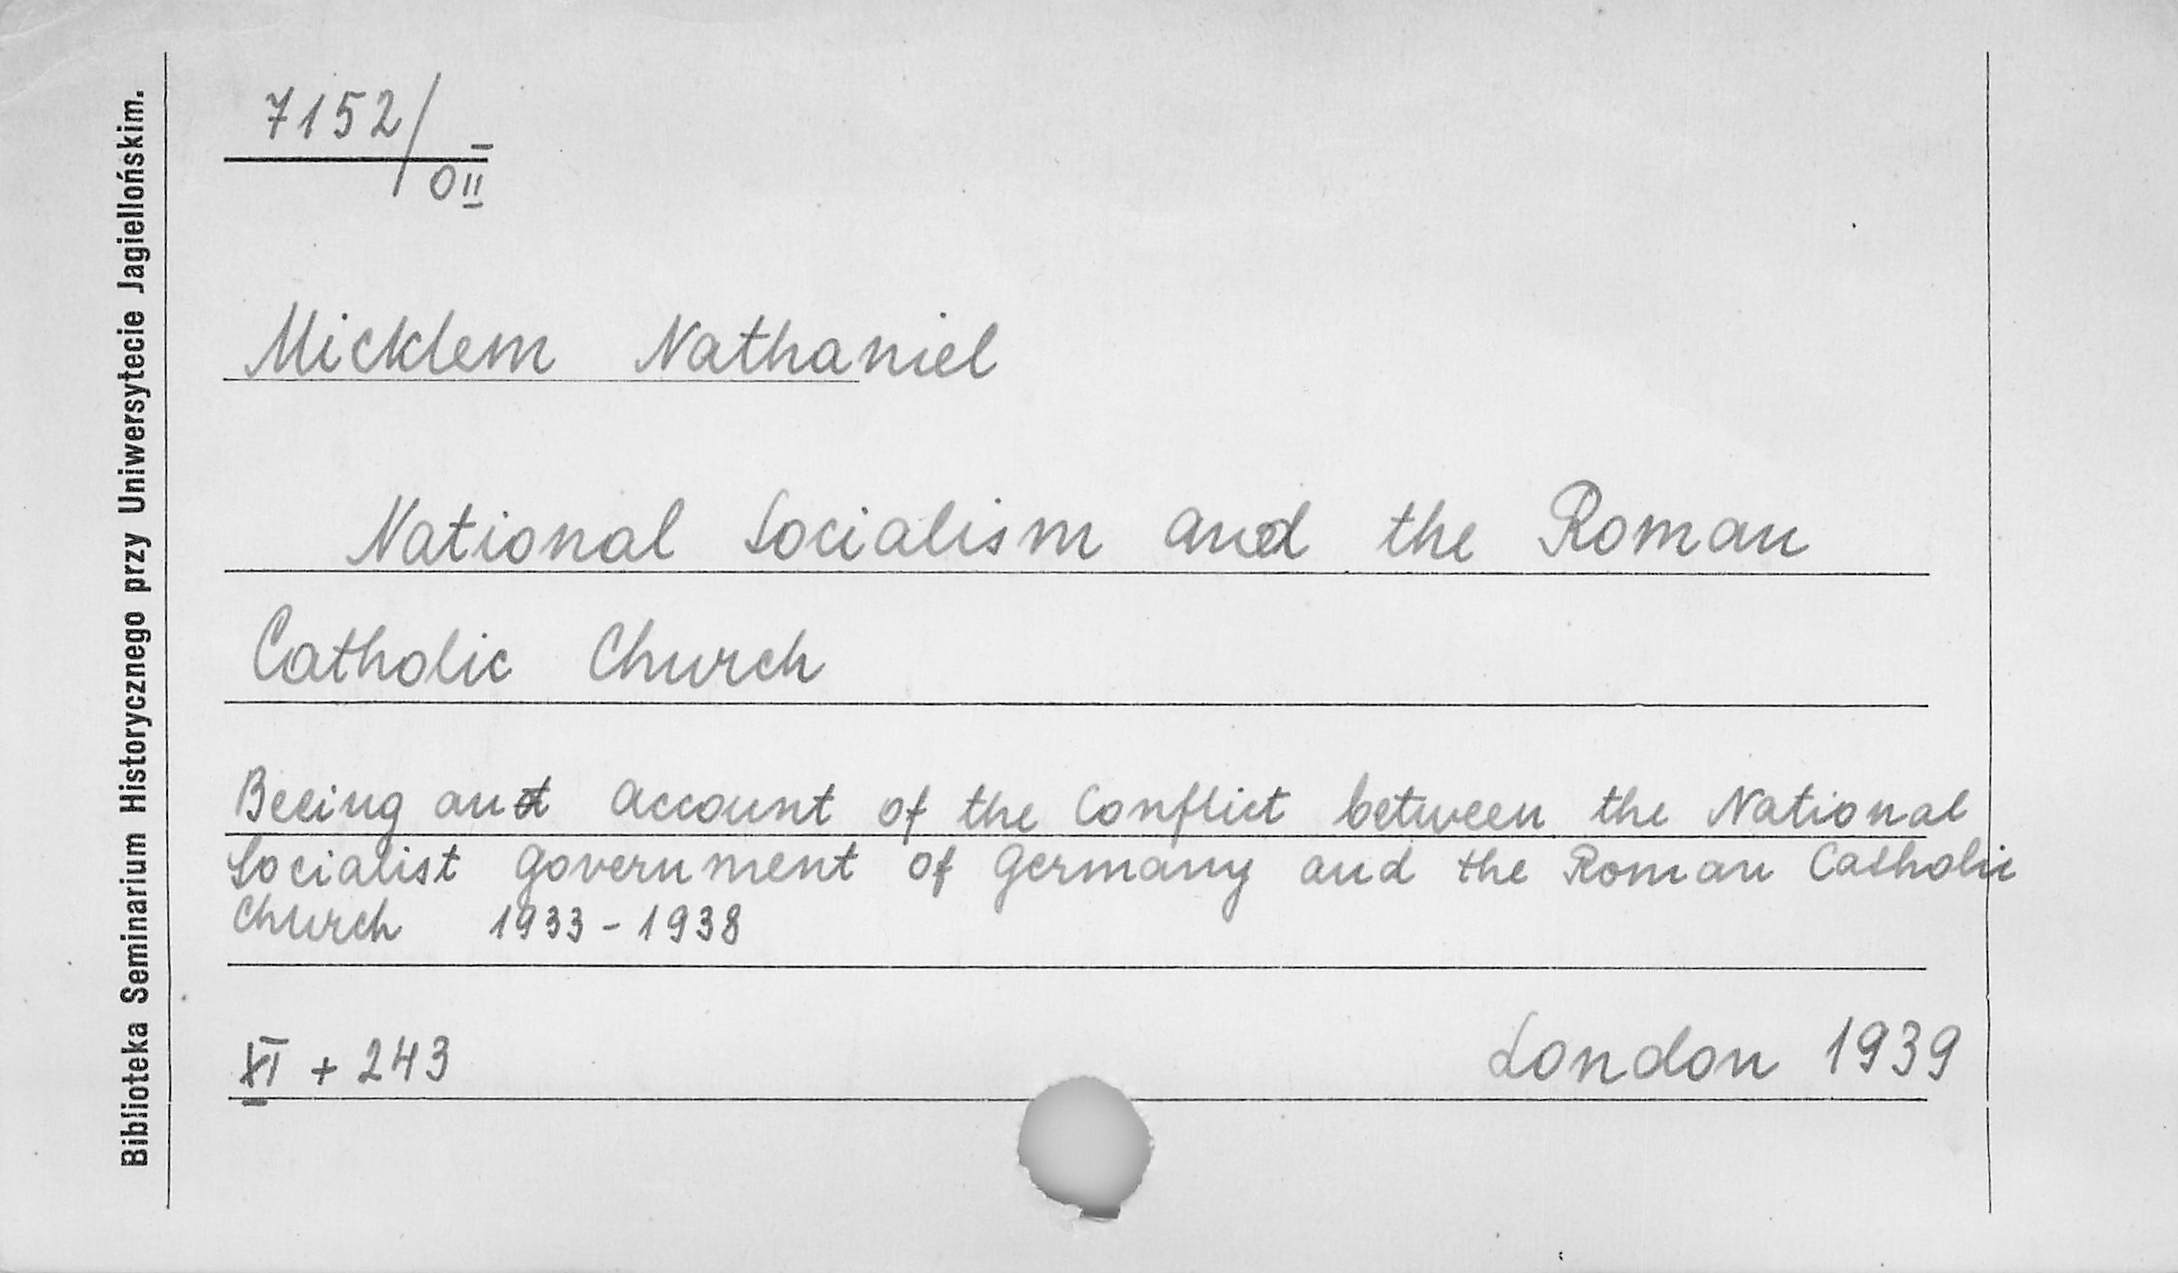 Biblioteka Seminarium Historycznego przy Uniwersytecie Jagiellońskim.
7152/
OII
Micklem Nathaniel
National Socialism and the Roman
Catholic Church
Beeing an account of the Conflict between the National
Socialist government of Germany and the Roman Catholic
Church 1933-1938
XI + 243
London 1939